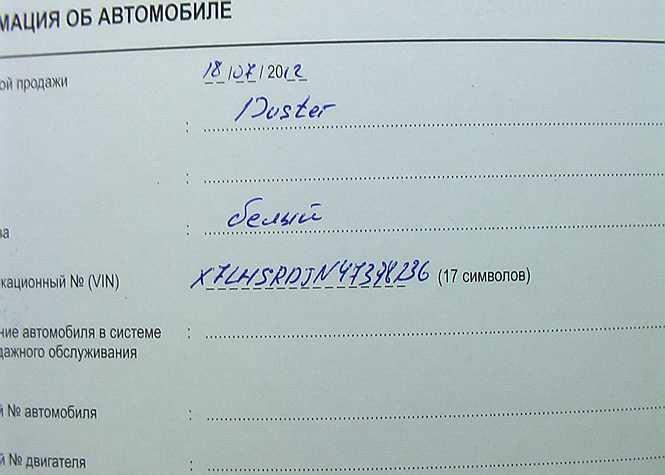 МАЦИЯ ОБ АВТОМОБИЛЕ
ой продажи 18/07/2012
: Duster
:
ва : белый
кационный № (VIN) X7LHSRDJN47398236 (17 символов)
ние автомобиля в системе :
дажного обслуживания
й № автомобиля :
й № двигателя :